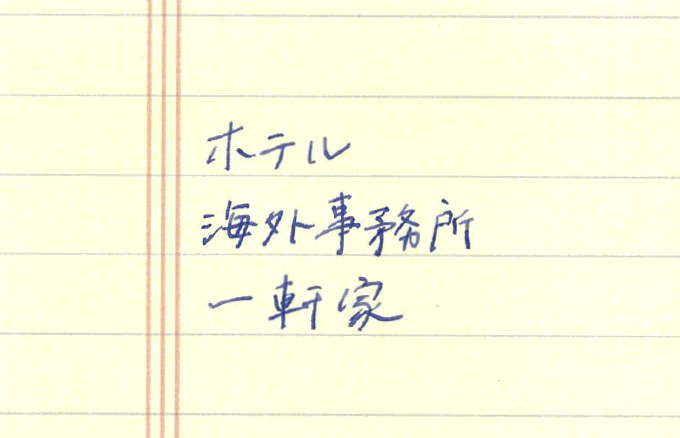 ホテル
海外事務所
一軒家